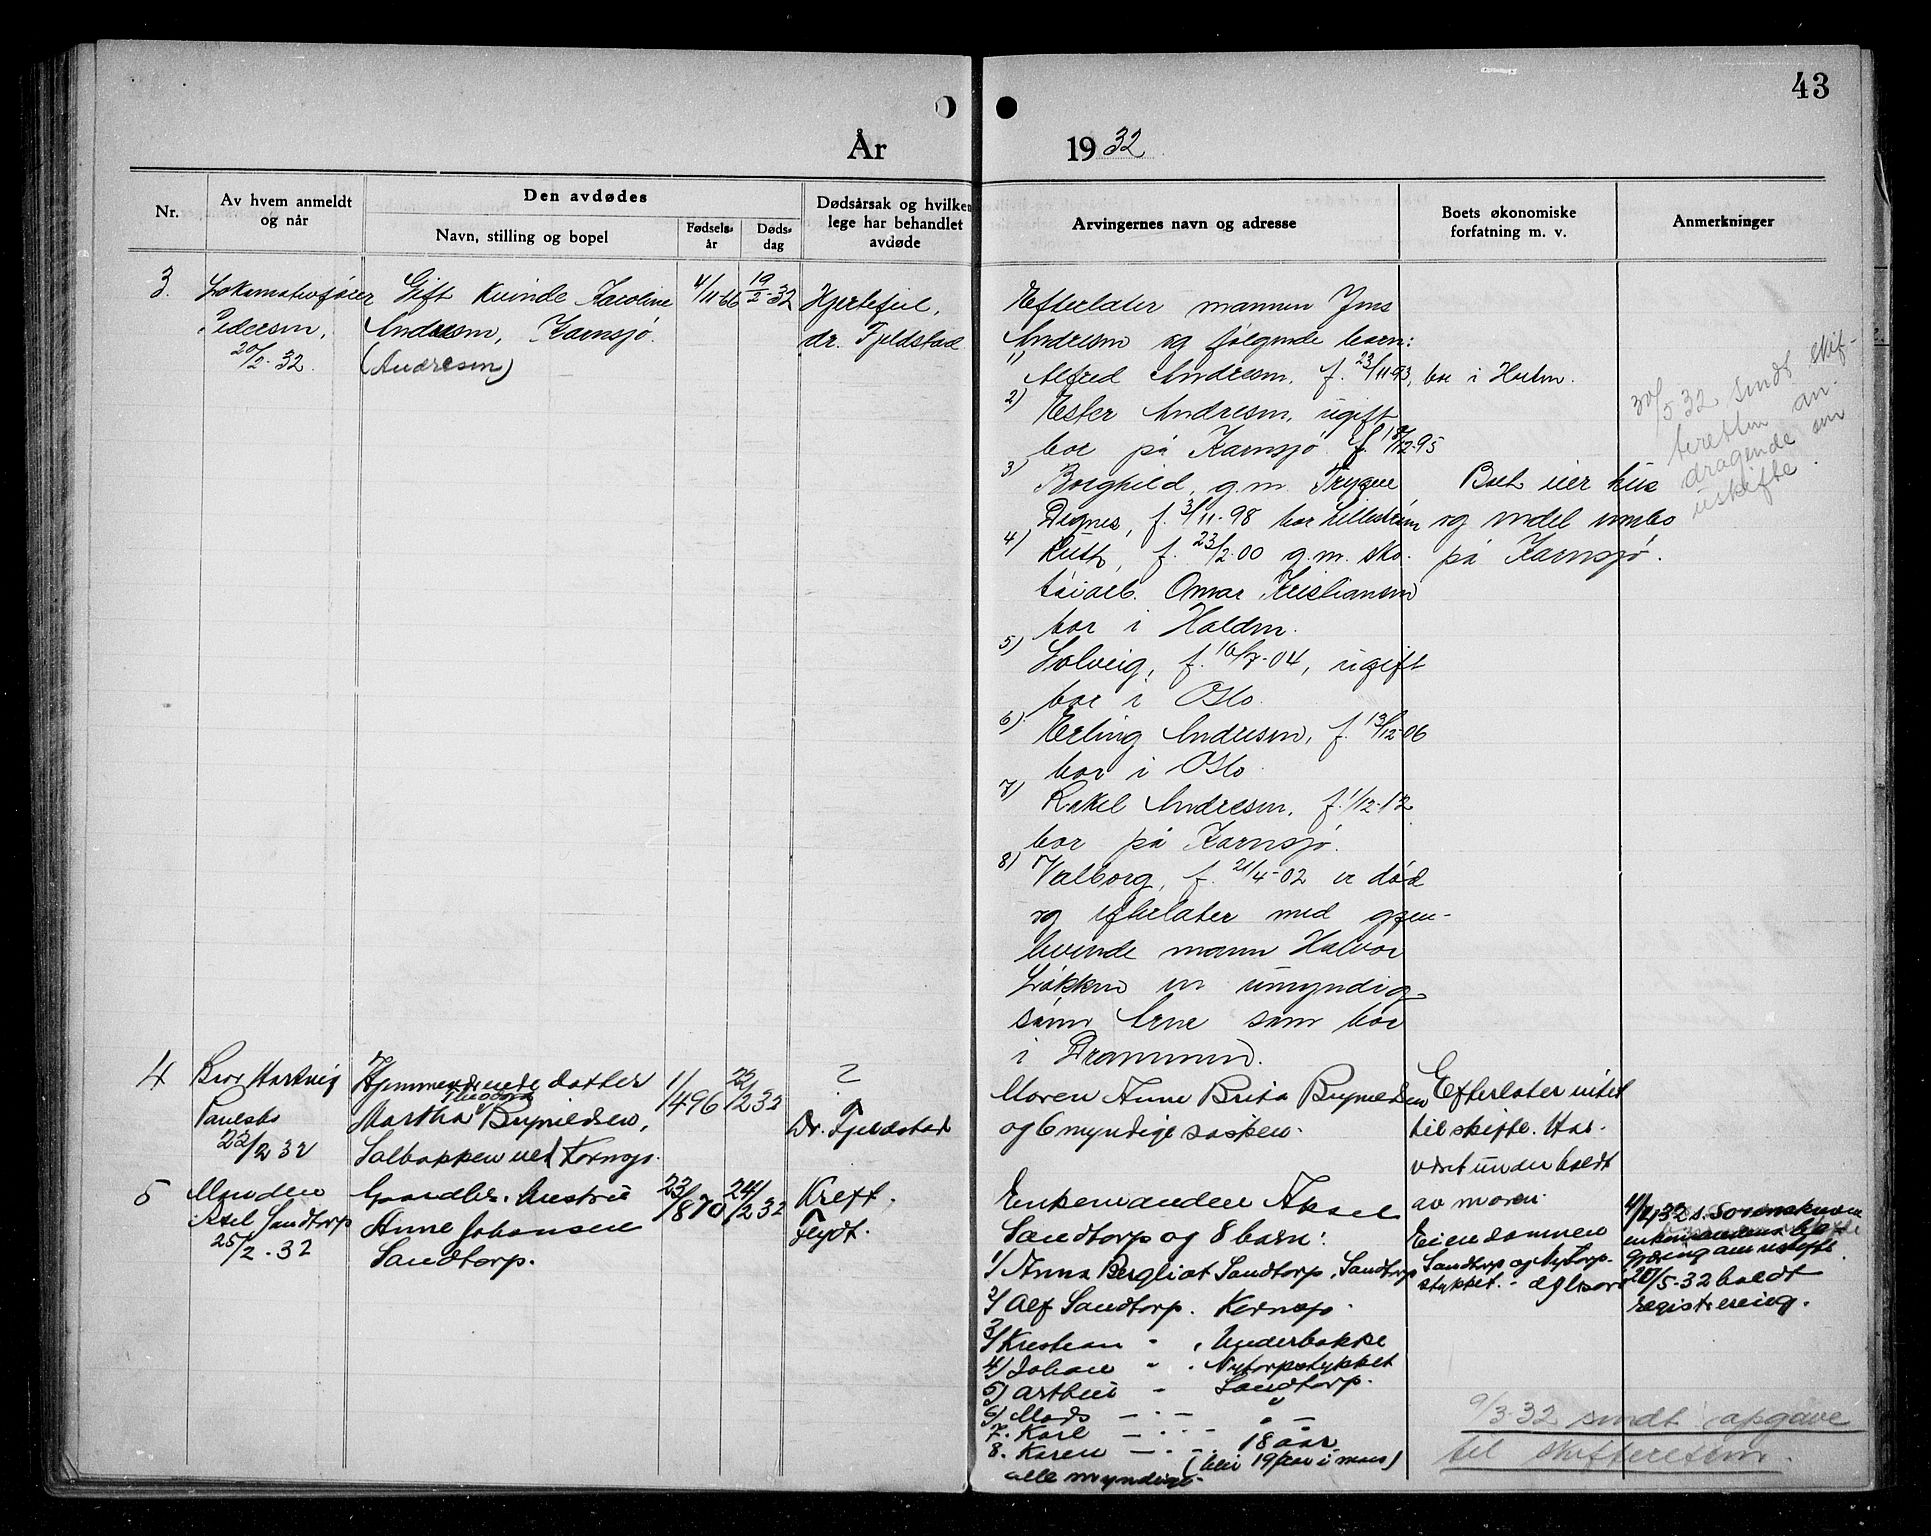 43
År 1932
Nr.
Av hvem anmeldt
og når
Den avdødes
Navn, stilling og bopel
Fødsels-
år
Døds-
dag
Dødsårsak og hvilken
lege har behandlet
avdøde
Arvingernes navn og adresse
Boets økonomiske
forfatning m. v.
Anmerkninger
3.
Lokomotivfører
Pedersen,
20/2-32.
Gift kvinde Karoline
Andresen, Kornsjø.
(Andresen)
4/11-66
19/2-32
Hjertefeil,
dr. Fjeldstad
Efterlater mannen Jens
Andresen og følgende barn:
1) Alfred Andresen, f. 23/11-93, bor i Halden.
2) Ester Andresen, ugift
bor på Kornsjø f. 18/12-95
3) Borghild, g.m. Trygve
Degnes, f. 3/11-98 bor Lillestrøm
4) Ruth, f. 23/2-00 g.m. sko-
tøiarb. Omar Kristiansen
bor i Halden.
5) Solveig, f. 16/7-04, ugift
bor i Oslo.
6) Erling Andresen, f. 13/12-06
bor i Oslo
7) Rakel Andresen, f. 1/12-12
bor på Kornsjø.
8) Valborg, f. 21/4-02 er død
og efterlater med gjen-
levende mann Halvor
Løkken en umyndig
sønn Arne som bor
i Drammen.
Boet eier hus
og endel innbo
på Kornsjø.
30/5 32 sendt skif-
teretten an-
dragende om
uskifte.
4
Bror Hartvig
Paulsbo
22/2 32
Hjemmeværende datter
Martha Theodora Brynildsen,
Solbakken ved Kornsjø.
1/4 96
22/2 32
?
Dr. Fjeldstad
Moren Anne Brita Brynildsen
og 6 myndige søsken.
Efterlater intet
til skifte. Har
været underholdt
av moren.
5
Manden
Axel Sandtorp
25/2-32
Gaardbr. hustru
Anne Johansen
Sandtorp.
23/8 70
24/2 32
Kreft.
Feydt.
Enkemanden Aksel
Sandtorp og 8 barn:
1/ Anna Bergliot Sandtorp, Sandtorp
2/ Alf Sandtorp. Kornsjø.
3/ Kristian " . Underbakke
4) Johan " . Nytorpstykket
5) Arthur - Sandtorp.
6) Mads — " — " —
7. Karl — " —
8. Karen — " — 18 aar
(blir 19 aar i mars)
alle myndige.
Eiendommen
Sandtorp og Nytorp-
stykket.
4/4 32 s. sorenskriven
enkemandens be-
gjæring om uskifte.
20/5-32 holdt
registrering.
9/3-32 sendt opgave
til skifteretten.